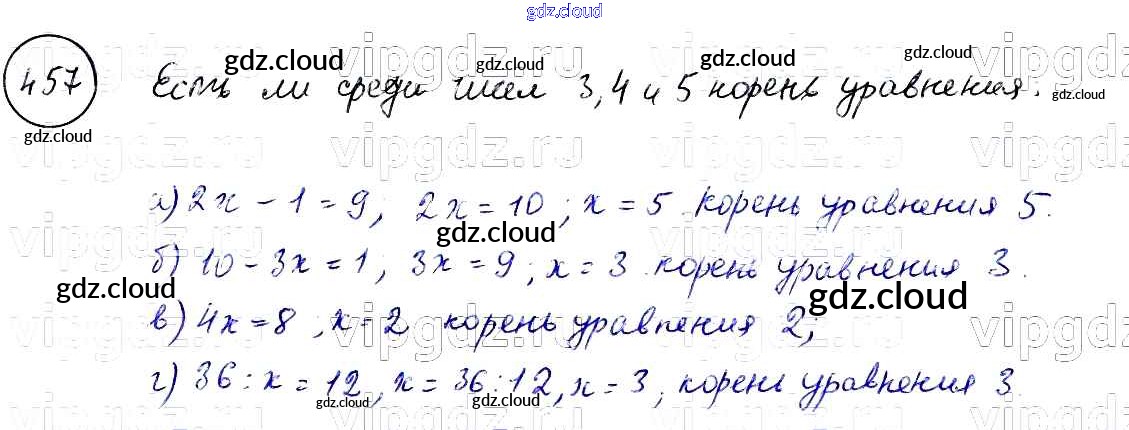 gdz.cloud
457 Есть ли среди чисел 3, 4 и 5 корень уравнения:
gdz.cloud gdz.cloud gdz.cloud gdz.cloud gdz.cloud
vipgdz.ru vipgdz.ru vipgdz.ru
vipgdz.ru vipgdz.ru vipgdz.ru
а) 2x - 1 = 9; 2x = 10; x = 5 корень уравнения 5.
gdz.cloud
б) 10 - 3x = 1; 3x = 9; x = 3. корень уравнения 3.
gdz.cloud gdz.cloud
в) 4x = 8, x = 2 корень уравнения 2;
г) 36 : x = 12, x = 36 : 12, x = 3; корень уравнения 3.
gdz.cloud gdz.cloud gdz.cloud
gdz.cloud